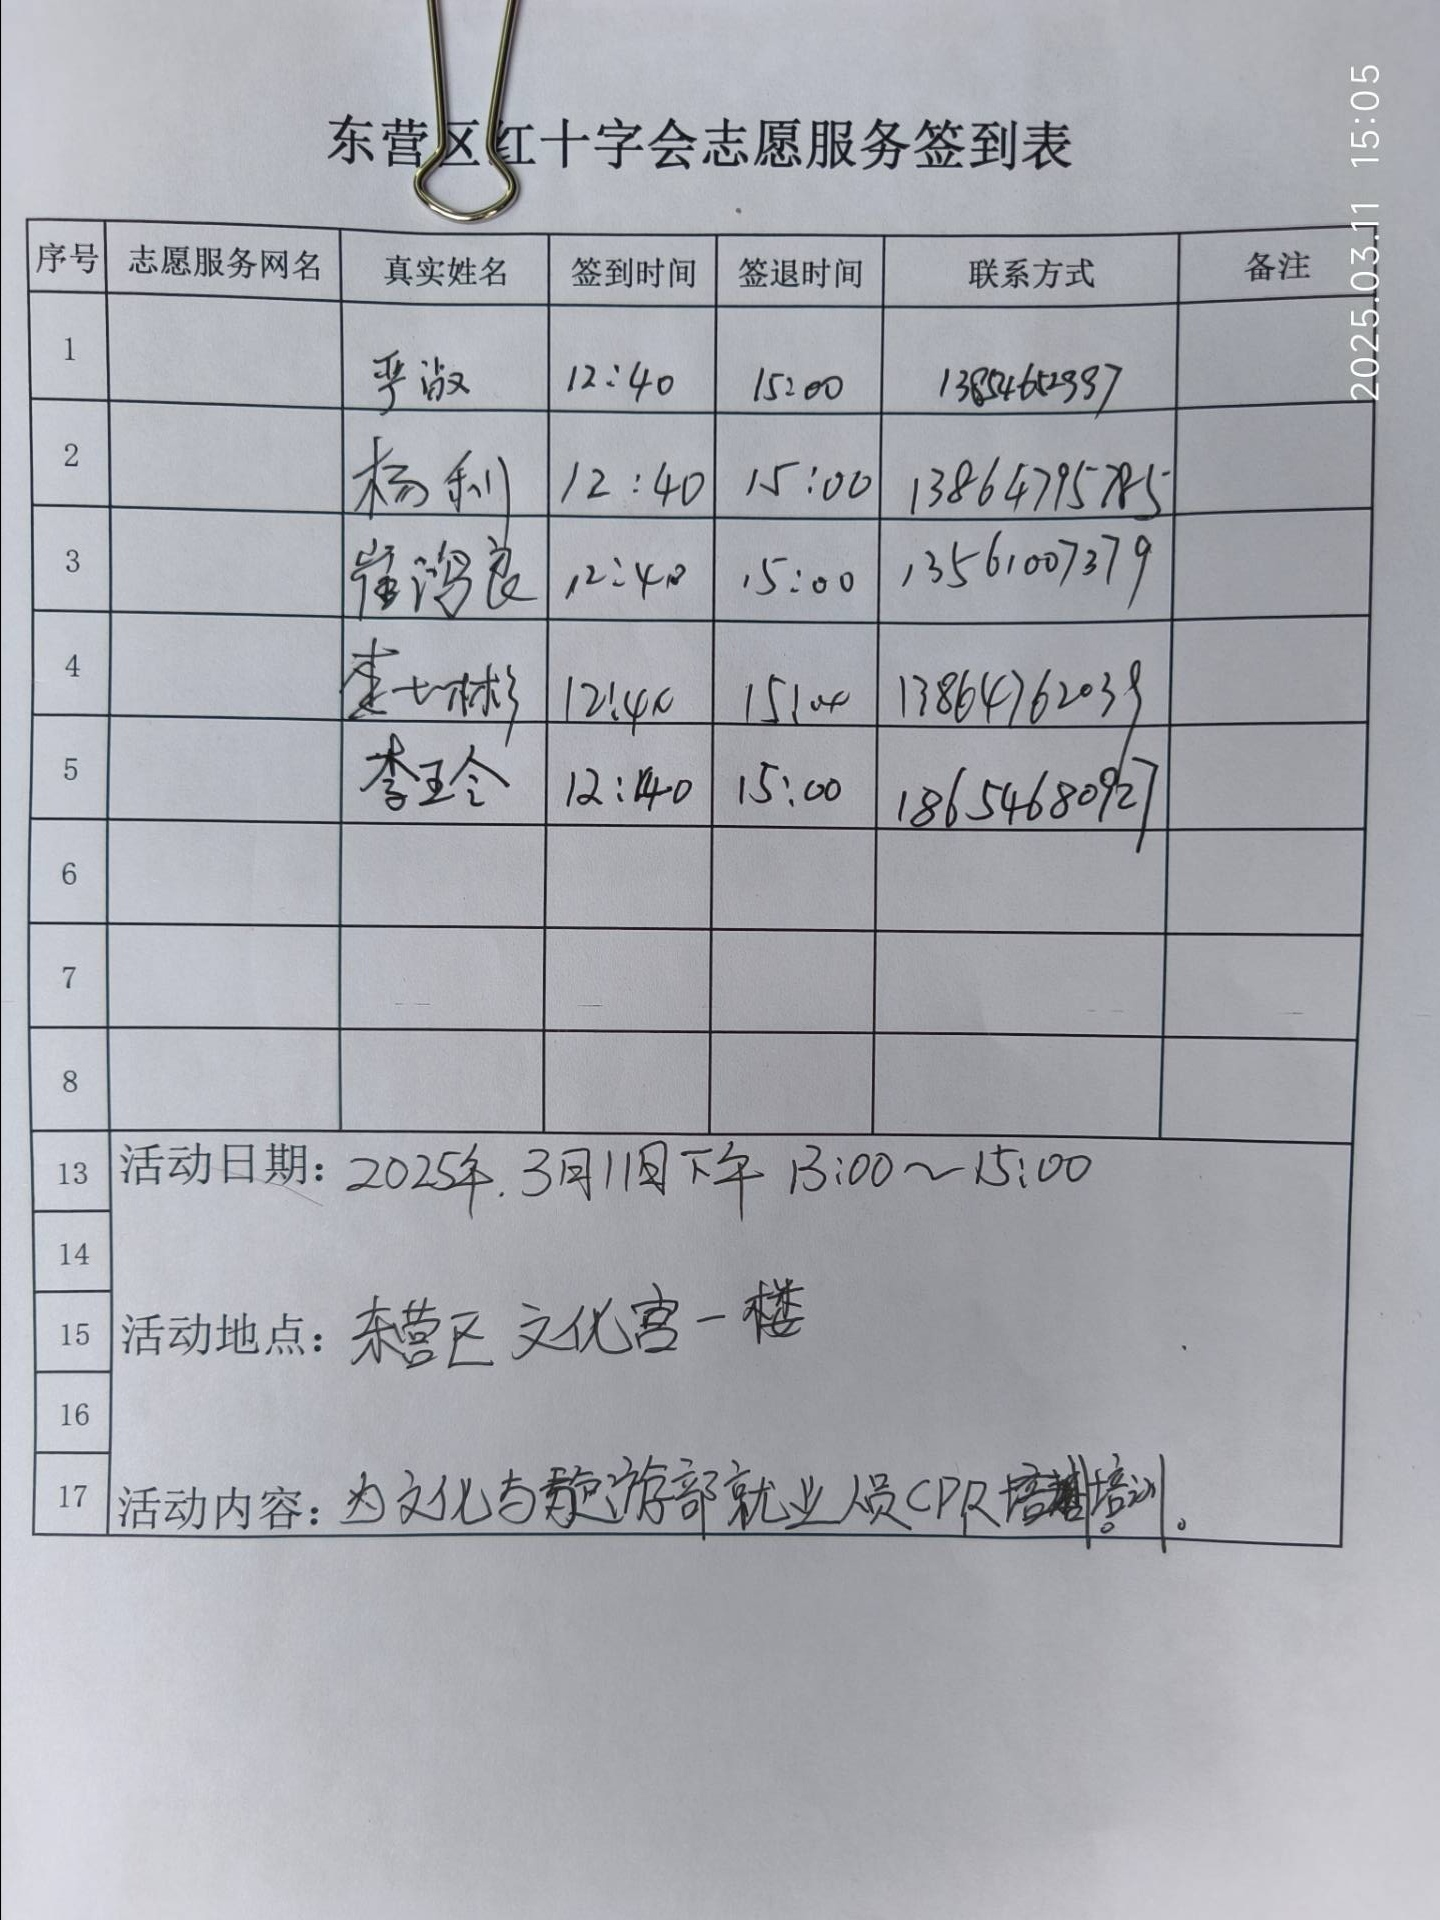 东营区红十字会志愿服务签到表
2025.03.11 15:05
序号 志愿服务网名 真实姓名 签到时间 签退时间 联系方式 备注
1 12:40 15:00
2 杨利 12:40 15:00 13864795785
3 崔 良 12:40 15:00 13561007379
4 12:40 15:00 13864762039
5 李玉令 12:40 15:00 18654680927
6
7
8
13 活动日期: 2025年.3月11日下午 13:00～15:00
14
15 活动地点: 东营区 文化宫一楼
16
17 活动内容: 为文化与 游部就业人员CPR 培训。